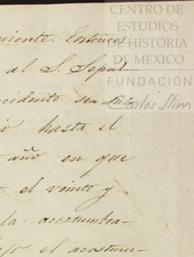 CENTRO DE
ESTUDIOS
DE HISTORIA
DE MEXICO
FUNDACIÓN
Carlos Slim
niente. Entonces
al S. Sepul
ccidente sea
hasta el
año en que
el veinte y
la acostumbra-
el acostum-